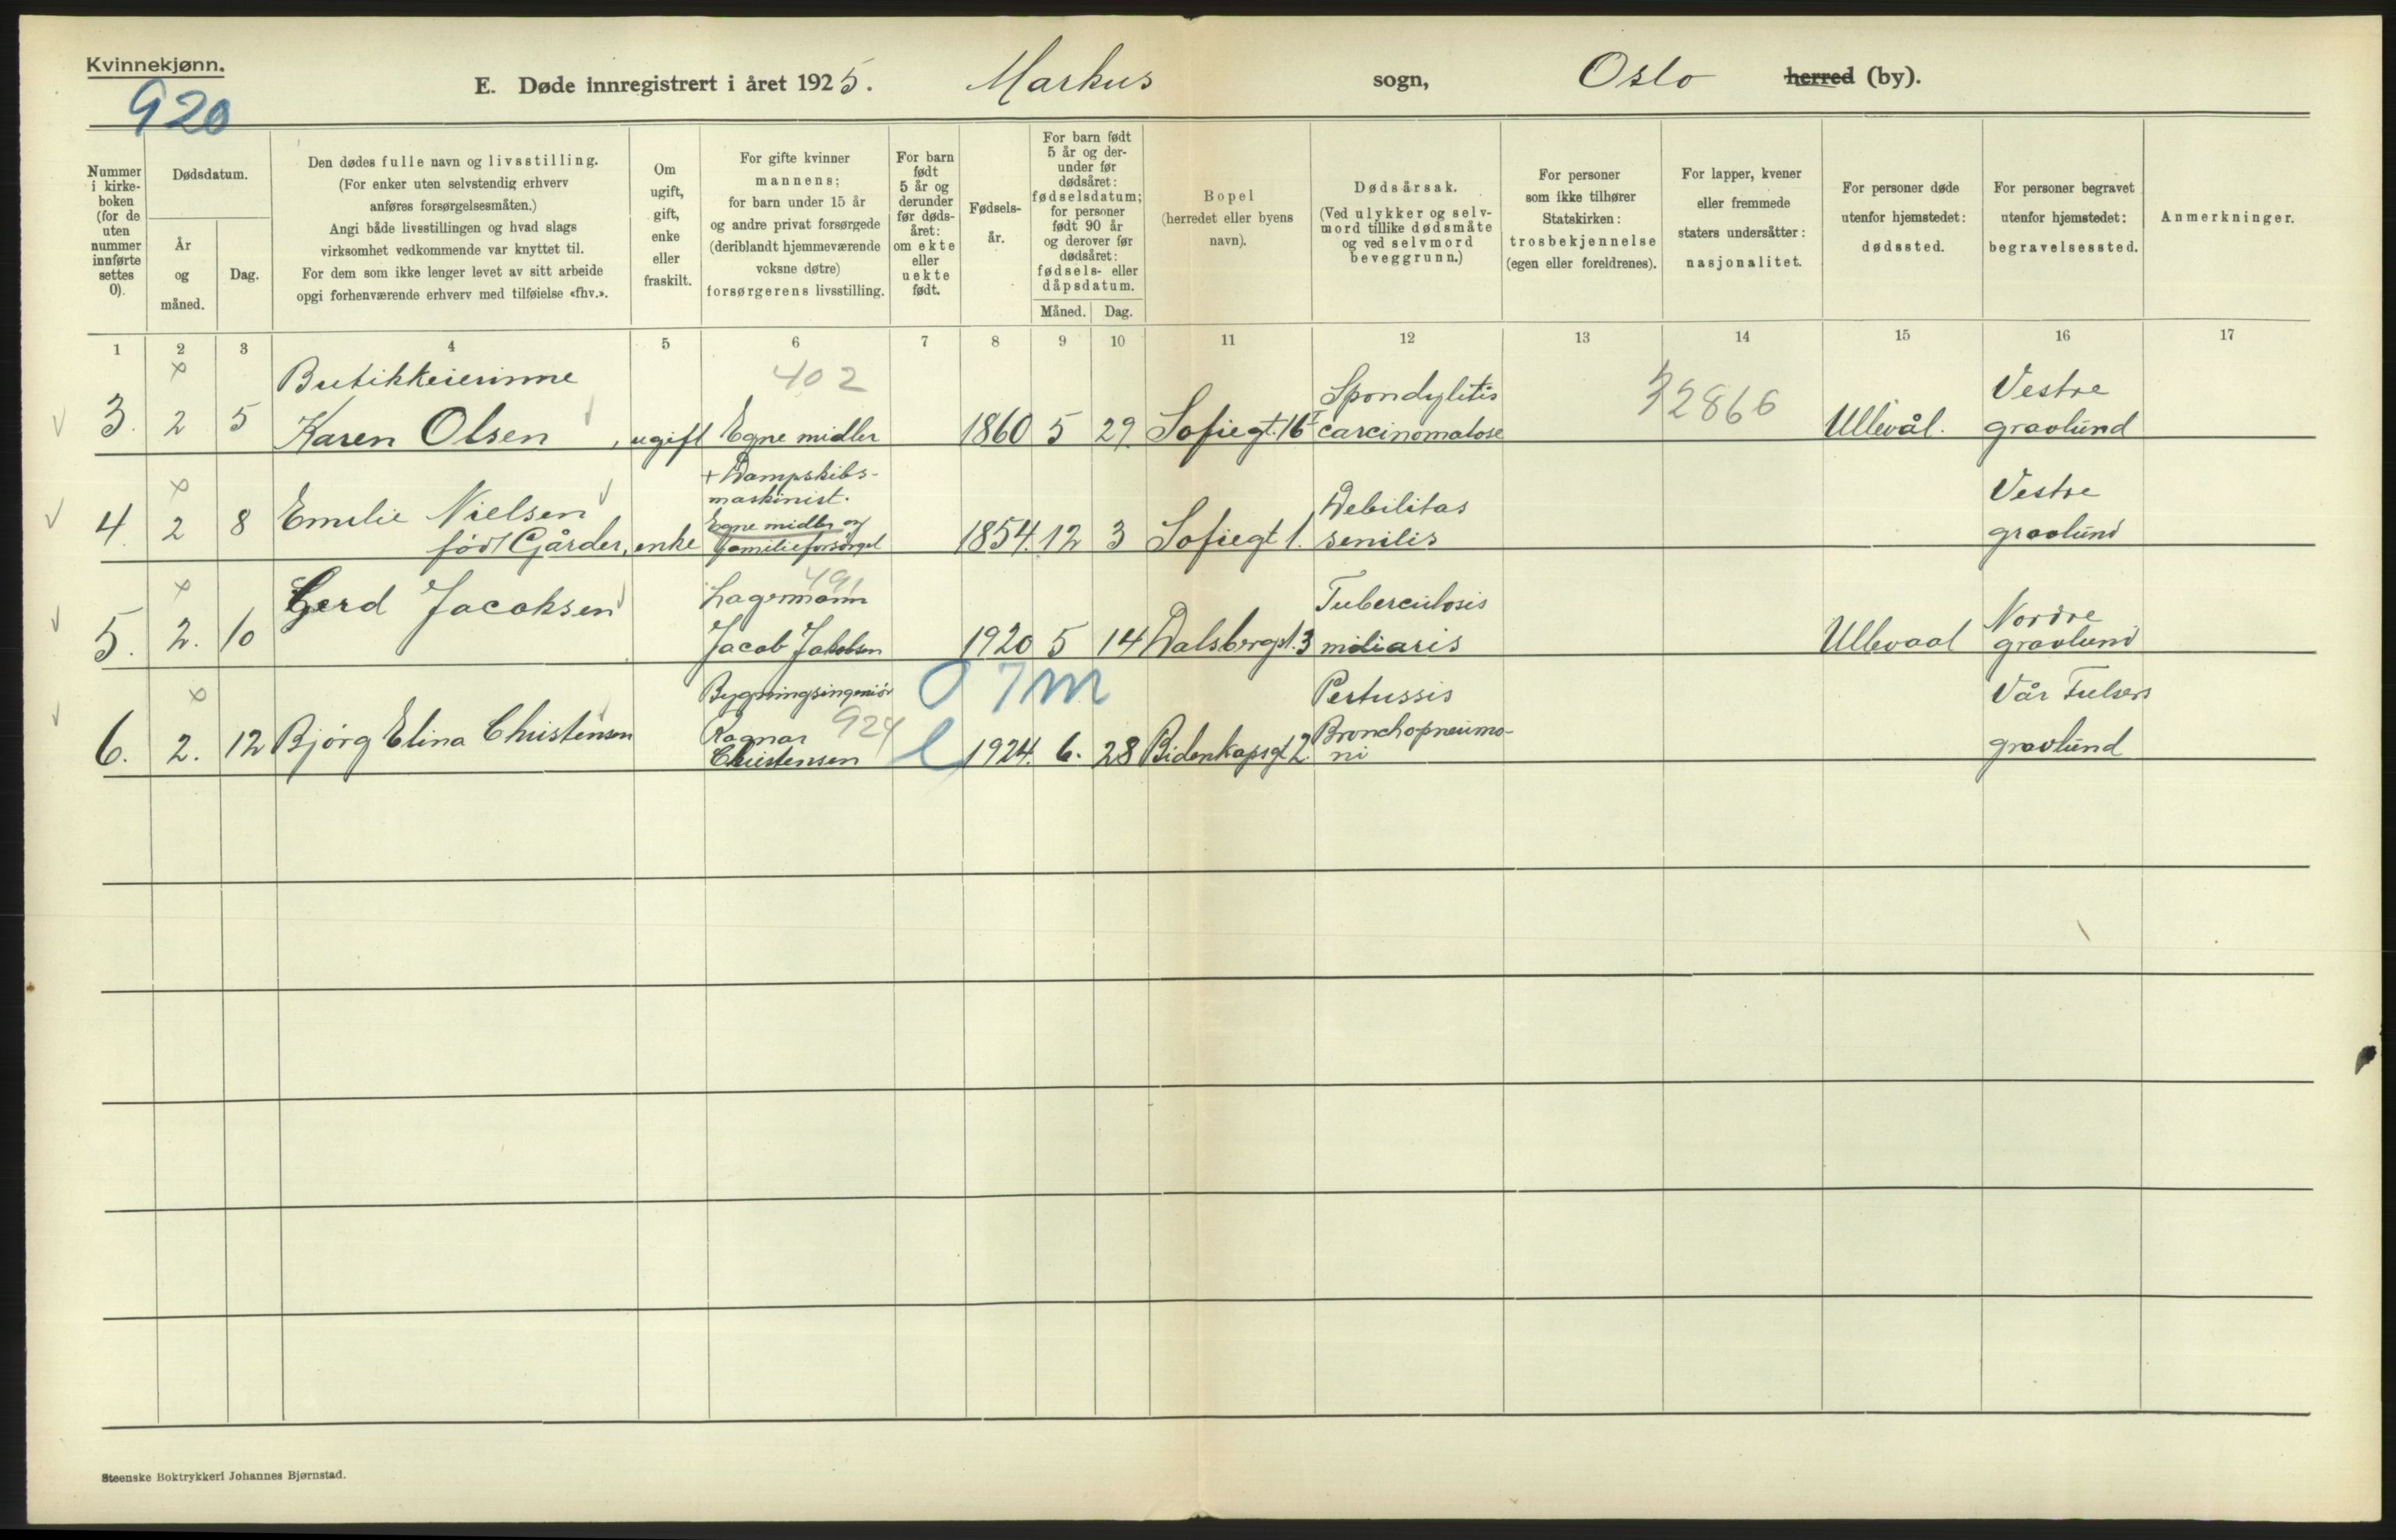 Kvinnekjønn.
920
E. Døde innregistrert i året 1925. Markus sogn, Oslo herred (by).
Nummer i kirkeboken (for de uten nummer innførte settes 0).
Dødsdatum.
År og måned.
Dag.
Den dødes fulle navn og livsstilling.
(For enker uten selvstendig erhverv
anføres forsørgelsesmåten.)
Angi både livsstillingen og hvad slags
virksomhet vedkommende var knyttet til.
For dem som ikke lenger levet av sitt arbeide
opgi forhenværende erhverv med tilføielse «fhv.».
Om
ugift,
gift,
enke
eller
fraskilt.
For gifte kvinner
mannens;
for barn under 15 år
og andre privat forsørgede
(deriblandt hjemmeværende
voksne døtre)
forsørgerens livsstilling.
For barn
født
5 år og
derunder
før døds-
året:
om ekte
eller
uekte
født.
Fødsels-
år.
For barn født
5 år og der-
under før
dødsåret:
fødselsdatum;
for personer
født 90 år
og derover før
dødsåret:
fødsels- eller
dåpsdatum.
Måned. Dag.
Bopel
(herredet eller byens
navn).
Dødsårsak.
(Ved ulykker og selv-
mord tillike dødsmåte
og ved selvmord
beveggrunn.)
For personer
som ikke tilhører
Statskirken:
trosbekjennelse
(egen eller foreldrenes).
For lapper, kvener
eller fremmede
staters undersåtter:
nasjonalitet.
For personer døde
utenfor hjemstedet:
dødssted.
For personer begravet
utenfor hjemstedet:
begravelsessted.
Anmerkninger.
1 2 3 4 5 6 7 8 9 10 11 12 13 14 15 16 17
Butikkeierinne 402 Spondylitis 32866 Vestre
3. 2 5 Karen Olsen, ugift Egne midler 1860 5 29. Sofiegt. 16 I carcinomatose Ullevål. gravlund
+ Dampskibs-
maskinist.
4. 2 8 Emilie Nielsen Egne midler og Debilitas Vestre
født Gårder, enke familieforsørget 1854. 12 3 Sofiegt 1. senilis gravlund
Gerd Jacobsen Lagermann 491 Tuberculosis Nordre
5. 2. 10 Jacob Jakobsen 1920 5 14 Dalsbergst. 3 miliaris Ullevaal gravlund
Bygningsingeniør 0 7m Pertussis Vår Frelsers
6. 2. 12 Bjørg Elina Christensen Ragnar 924 Bronchopneumo-
Christensen 1924. 6. 28 Bidenkapsgt 2. ni gravlund
Steenske Boktrykkeri Johannes Bjørnstad.